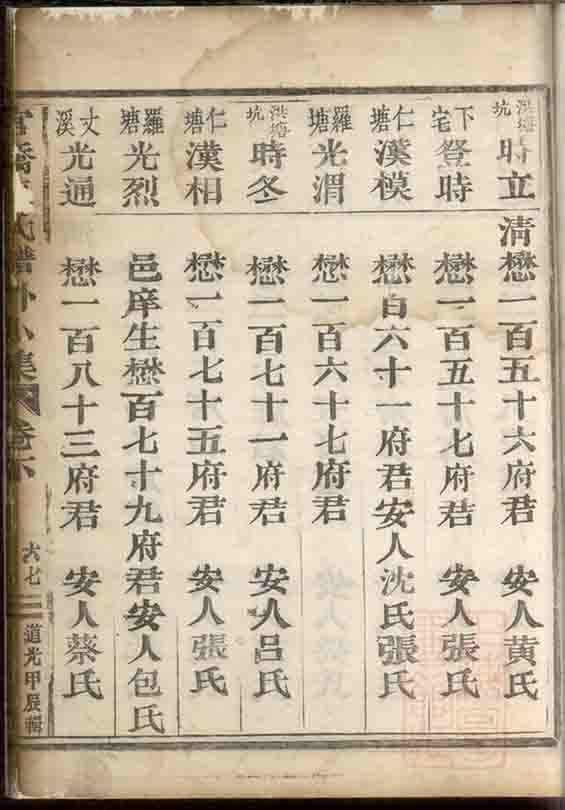 洪塘坑 時立 清懋一百五十六府君 安人黃氏
下宅 登時 懋一百五十七府君 安人張氏
仁塘 漢模 懋百六十一府君安人沈氏張氏
羅塘 光渭 懋一百六十七府君
洪塘坑 時冬 懋一百七十一府君 安人呂氏
仁塘 漢相 懋一百七十五府君 安人張氏
羅塘 光烈 邑庠生懋一百七十九府君安人包氏
丈溪 光通 懋一百八十三府君 安人蔡氏
橋 氏譜外小集 卷六 六七 道光甲辰輯